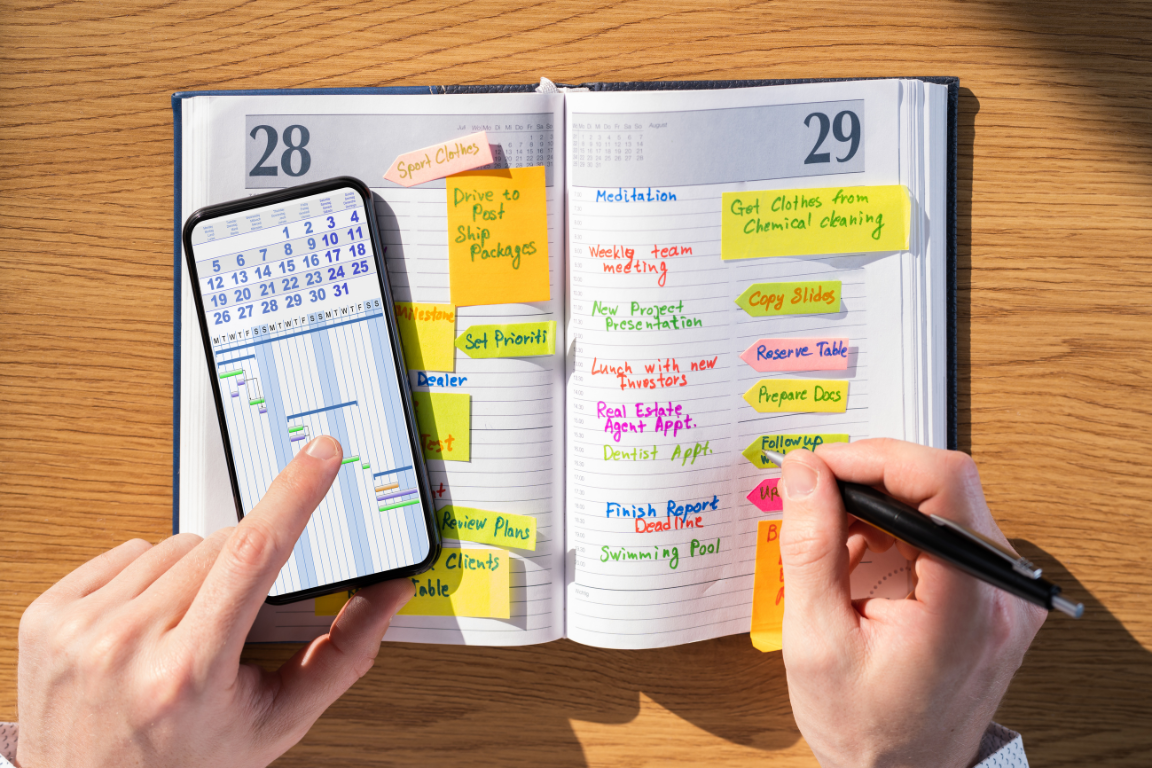 28
Sport Clothes
Drive to
Post
Ship
Packages
Milestone
Set Prioriti
Dealer
Test
Review Plans
Clients
Table
1 2 3 4
5 6 7 8 9 10 11
12 13 14 15 16 17 18
19 20 21 22 23 24 25
26 27 28 29 30 31
M T W T F S S M T W T F S S M T W T F S S
29
August
Meditation
Weekly team
meeting
New Project
Presentation
Lunch with new
Investors
Real Estate
Agent Appt.
Dentist Appt.
Finish Report
Deadline
Swimming Pool
Get Clothes from
Chemical cleaning
Copy Slides
Reserve Table
Prepare Docs
Follow up
Up
B